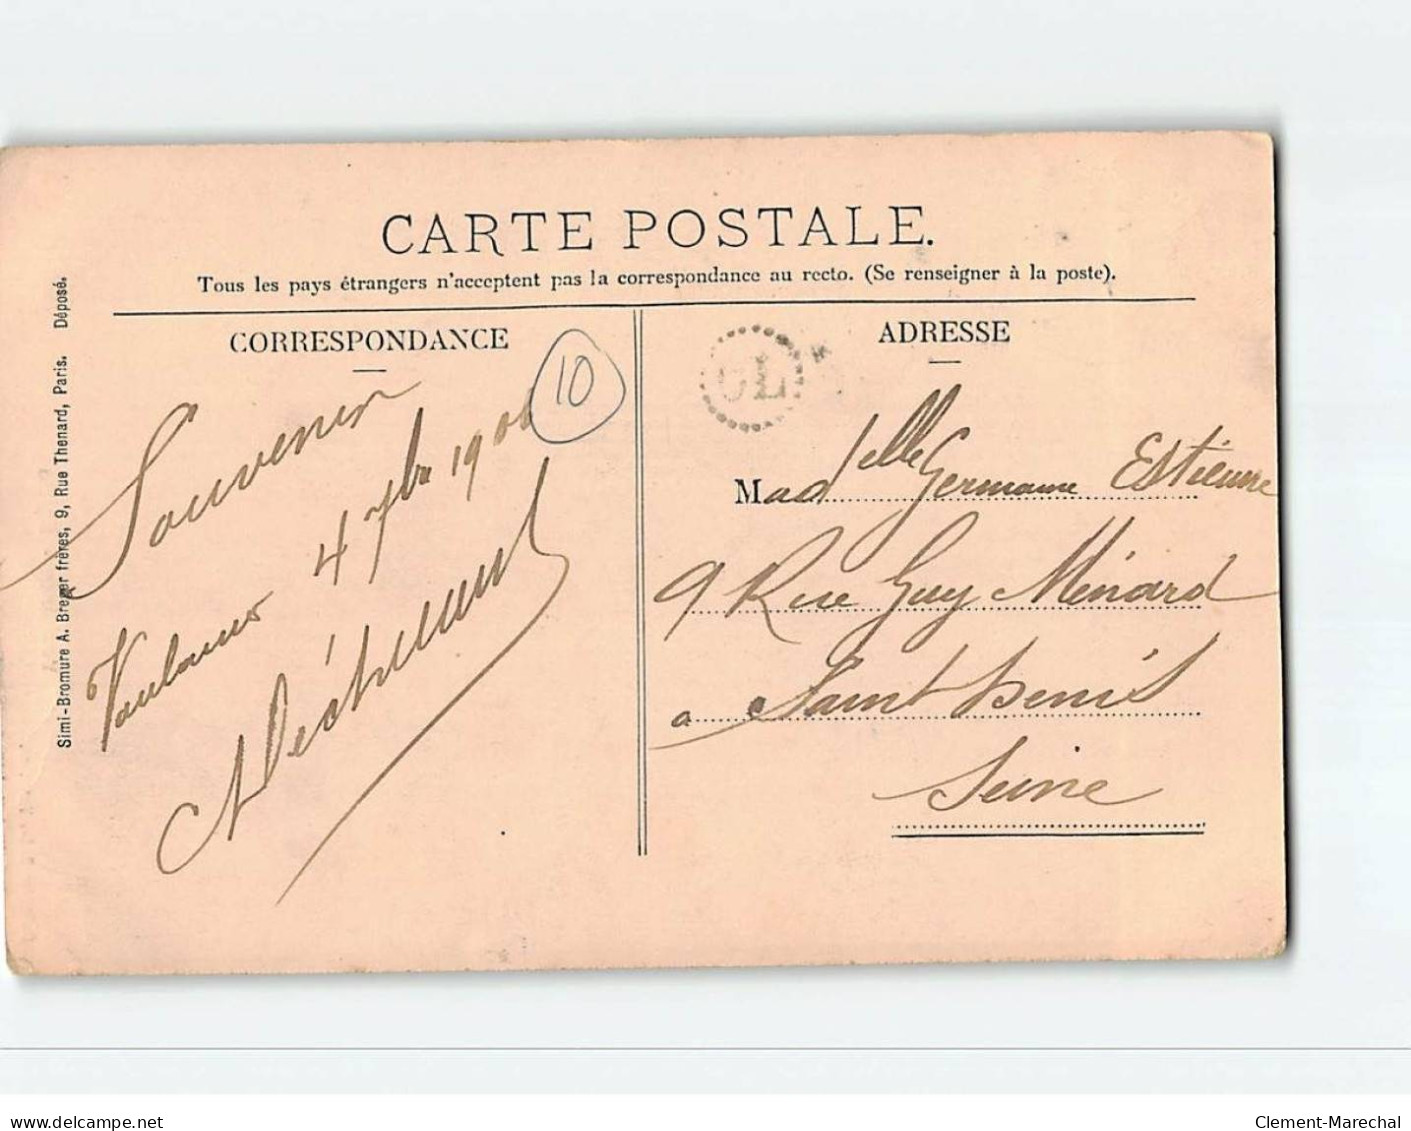 CARTE POSTALE.
Tous les pays étrangers n'acceptent pas la correspondance au recto. (Se renseigner à la poste).
Simi-Bromure A. Breger frères, 9, Rue Thenard, Paris. Déposé.
CORRESPONDANCE
10
Souvenir
4 7bre 190
ADRESSE
CL
Mad elle Germaine Estienne
9 Rue Guy Ménard
a Saint Denis
Seine
www.delcampe.net
Clement-Marechal